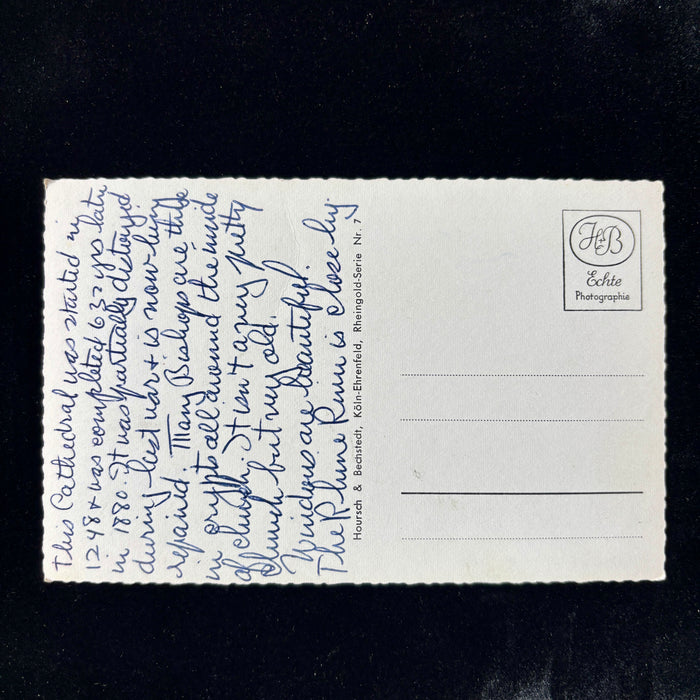 This Cathedral was started in
1248 & was completed 632 yrs later
in 1880. It was partially destroyed
during last war & is now being
repaired. Many Bishops are
in crypts all around the inside
of church. It isn't a very pretty
church but very old.
Windows are beautiful.
The Rhine River is close by.
Hoursch & Bechstedt, Köln-Ehrenfeld, Rheingold-Serie Nr. 7
H&B
Echte
Photographie